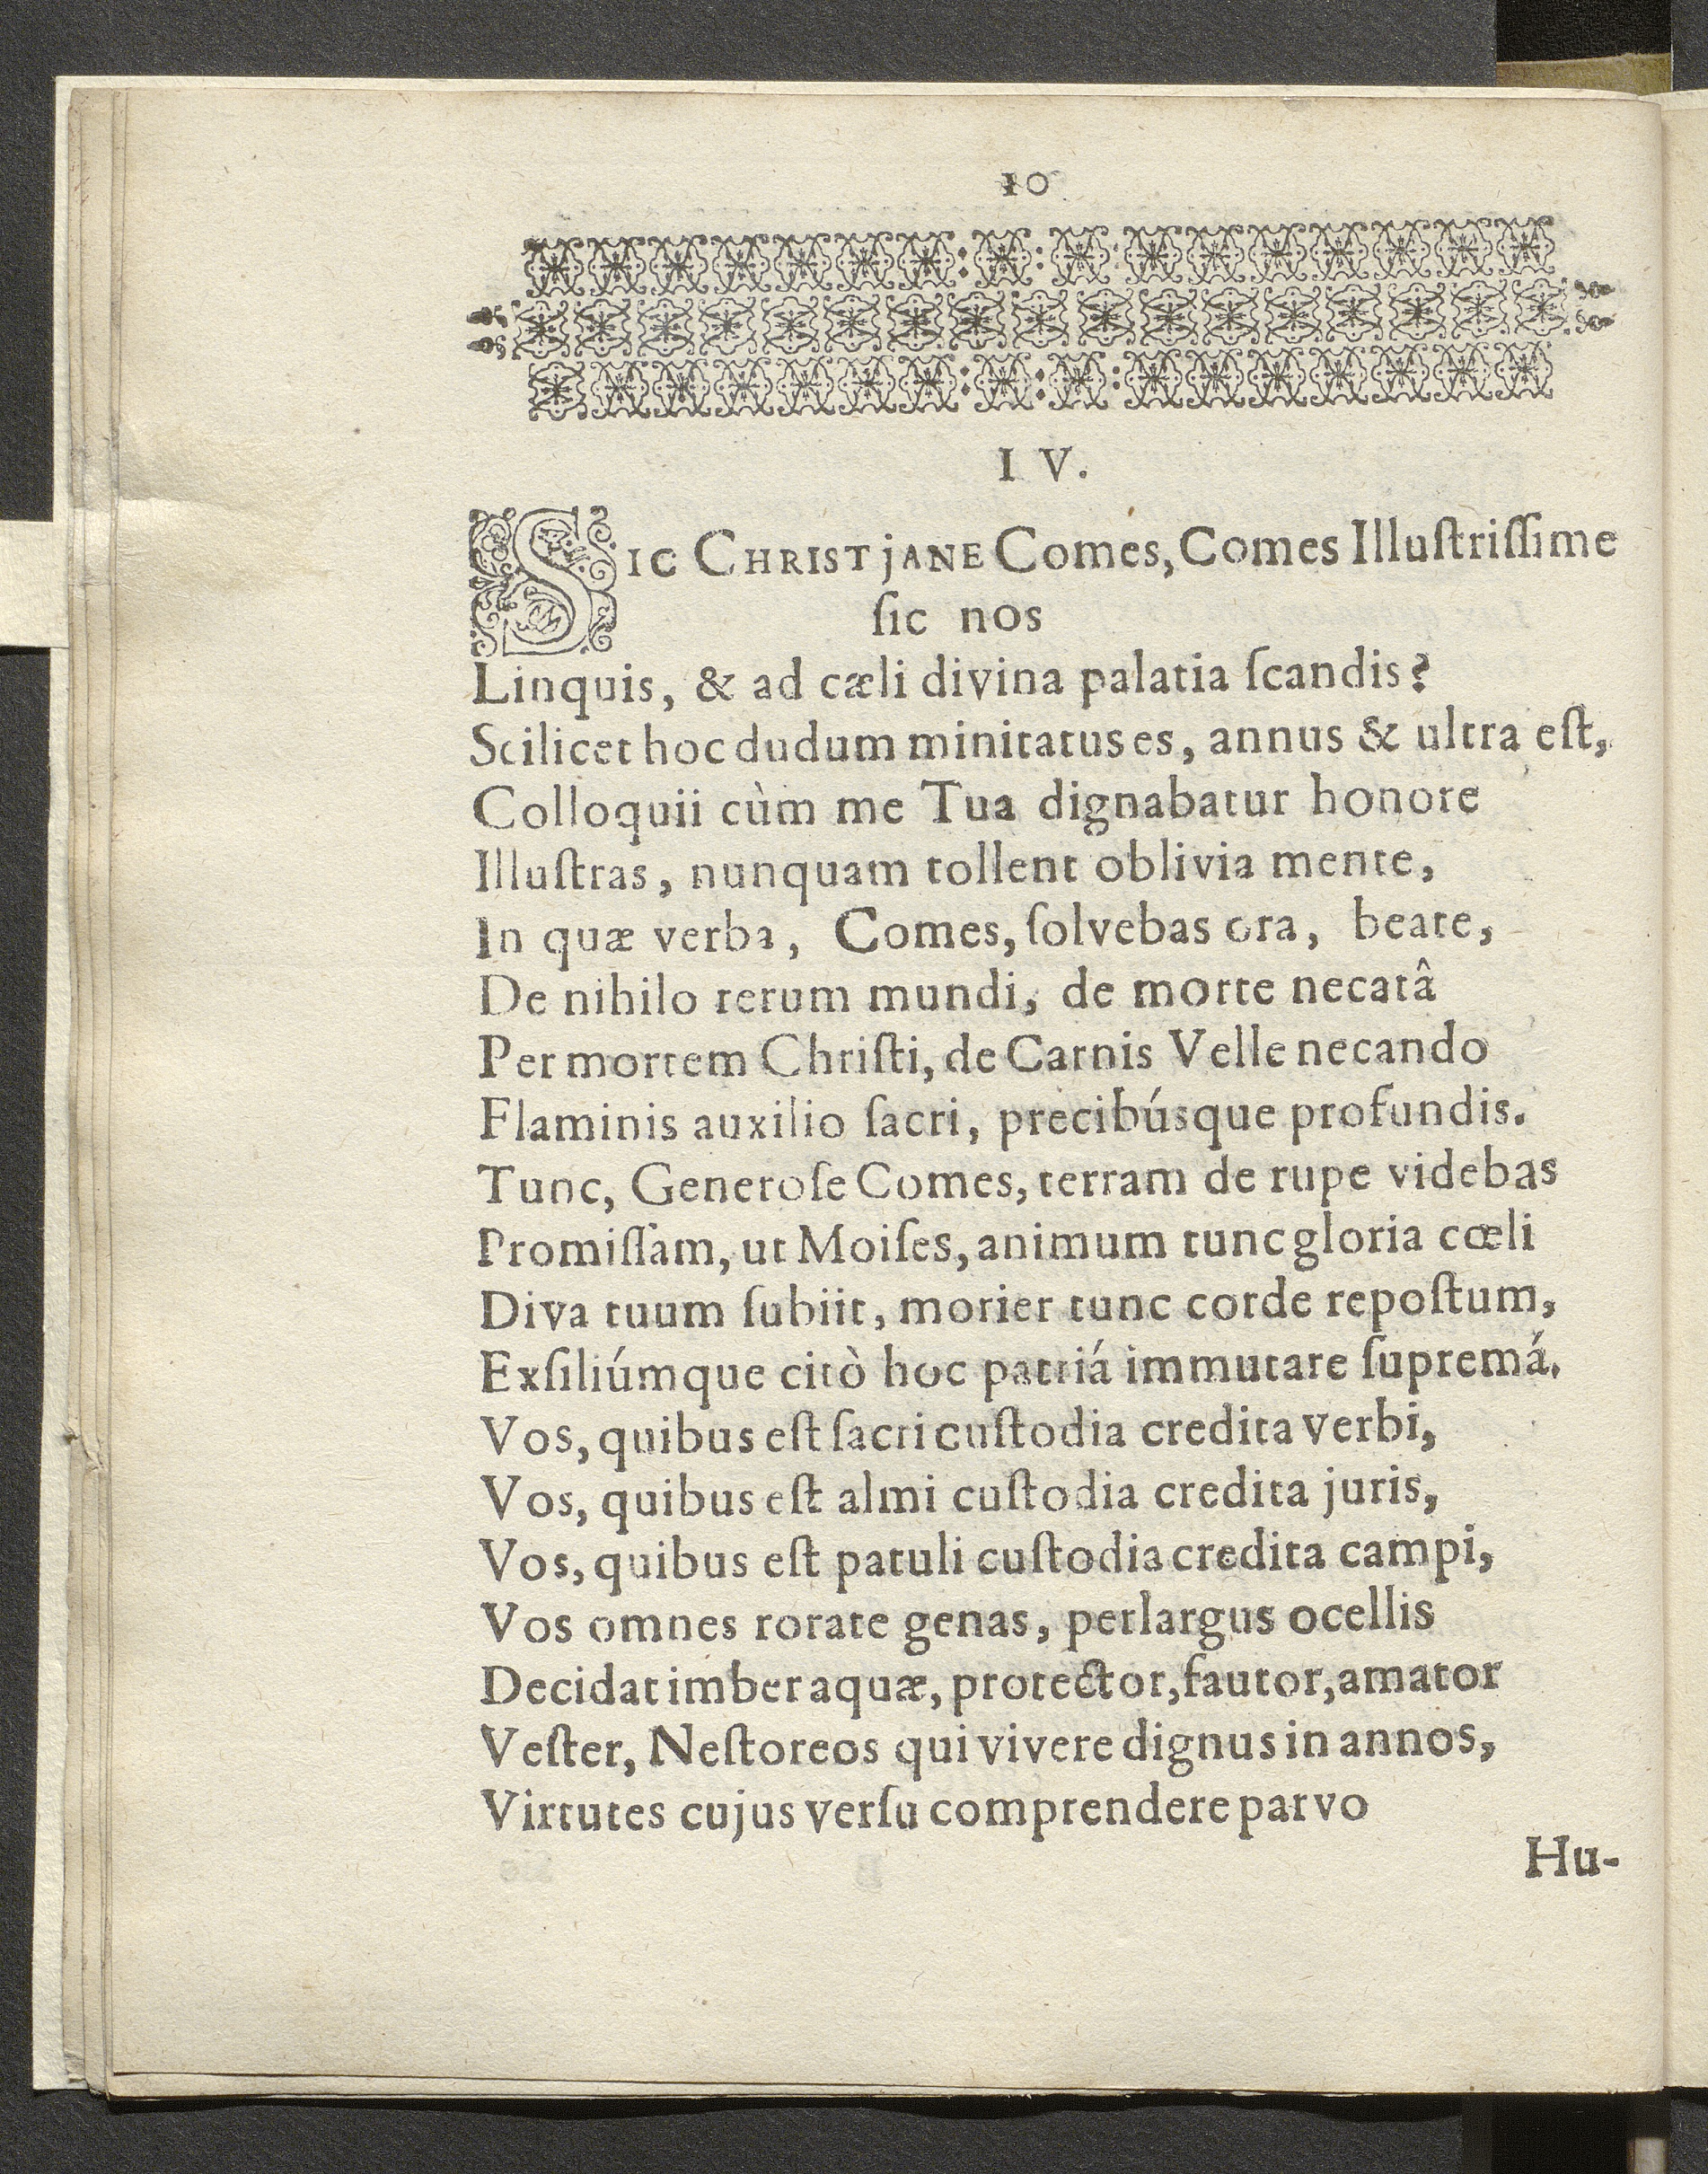 10
I V.
SIC CHRISTjANE Comes, Comes Illuſtriſſime
ſic nos
Linquis, & ad cæli divina palatia ſcandis?
Scilicet hoc dudum minitatus es, annus & ultra eſt,
Colloquii cùm me Tua dignabatur honore
Illuſtras, nunquam tollent oblivia mente,
In quæ verba, Comes, ſolvebas ora, beate,
De nihilo rerum mundi, de morte necatâ
Per mortem Chriſti, de Carnis Velle necando
Flaminis auxilio ſacri, precibúsque profundis.
Tunc, Generoſe Comes, terram de rupe videbas
Promiſſam, ut Moiſes, animum tunc gloria cœli
Diva tuum ſubiit, morier tunc corde repoſtum,
Exſiliúmque citò hoc patriá immutare ſupremá.
Vos, quibus eſt ſacri cuſtodia credita verbi,
Vos, quibus eſt almi cuſtodia credita juris,
Vos, quibus eſt patuli cuſtodia credita campi,
Vos omnes rorate genas, perlargus ocellis
Decidat imber aquæ, protector, fautor, amator
Veſter, Neſtoreos qui vivere dignus in annos,
Virtutes cujus verſu comprendere parvo
Hu-